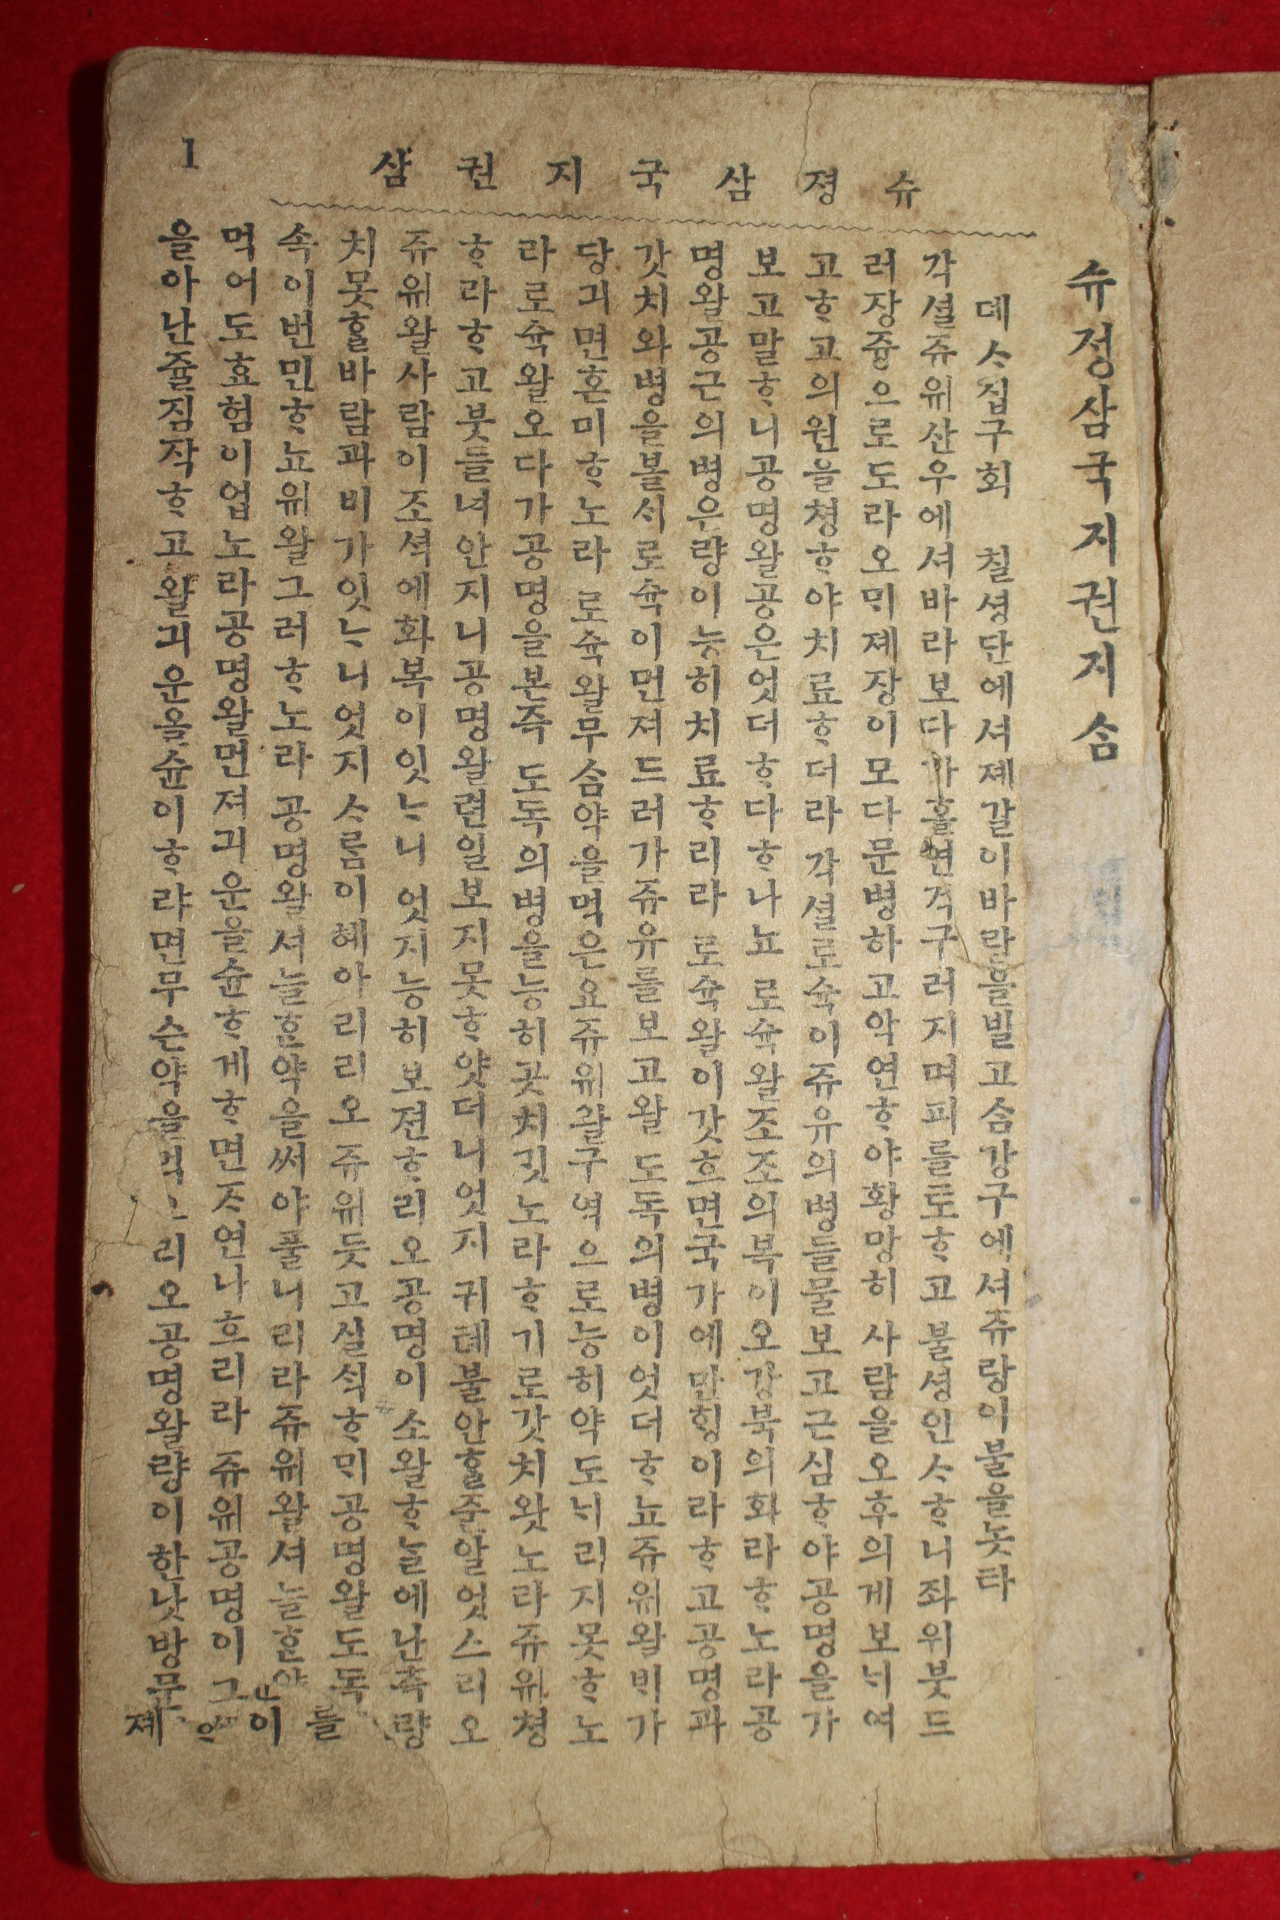 슈졍삼국지권삼
1
슈정삼국지권지삼
뎨ᄉ집구회 칠셩단에셔졔갈이바람을빌고삼강구에셔쥬랑이불을놋타
각셜쥬위산우에셔바라보다가홀연젹구러지며피를토ᄒᆞ고 불셩인ᄉᆞᄒᆞ니좌위붓드
러장즁으로도라오ᄆᆡ졔장이모다문병하고악연ᄒᆞ야황망히 사람을오후의게보ᄂᆡ여
고ᄒᆞ고의원을쳥ᄒᆞ야치료ᄒᆞ더라 각셜로슉이쥬유의병들믈보고근심ᄒᆞ야공명을가
보고말ᄒᆞ니공명왈공은엇더ᄒᆞ다ᄒᆞ나뇨 로슉왈조조의복이오강북의화라ᄒᆞ노라공
명왈공근의병은량이능히치료ᄒᆞ리라 로슉왈이갓흐면국가에만ᄒᆡᆼ이라ᄒᆞ고공명과
갓치와병을볼ᄉᆡ로슉이먼져드러가쥬유를보고왈 도독의병이엇더ᄒᆞ뇨쥬위왈ᄇᆡ가
당긔면혼미ᄒᆞ노라 로슉왈무삼약을먹은요쥬위왈구역으로능히약도ᄂᆡ리지못ᄒᆞ노
라로슉왈오다가공명을본즉 도독의병을능히곳치깃노라ᄒᆞ기로갓치왓노라쥬위쳥
ᄒᆞ라ᄒᆞ고붓들녀안지니공명왈련일보지못ᄒᆞ얏더니엇지 귀톄불안ᄒᆞᆯ줄알엇스리오
쥬위왈사람이조셕에화복이잇ᄂᆞ니 엇지능히보젼ᄒᆞ리오공명이소왈ᄒᆞᄂᆞᆯ에난측량
치못ᄒᆞᆯ바람과비가잇ᄂᆞ니엇지ᄉᆞ름이혜아리리오 쥬위듯고실식ᄒᆞᄆᆡ공명왈도독
속이번민ᄒᆞ뇨위왈그러ᄒᆞ노라 공명왈셔늘ᄒᆞᆫ약을써야풀니리라쥬위왈셔늘ᄒᆞᆫ약
먹어도효험이업노라공명왈먼져긔운을슌ᄒᆞ게ᄒᆞ면ᄌᆞ연나흐리라 쥬위공명이그
을아난쥴짐작ᄒᆞ고왈긔운을슌이ᄒᆞ랴면무슨약을 리오공명왈량이한낫방문
들
이
졔